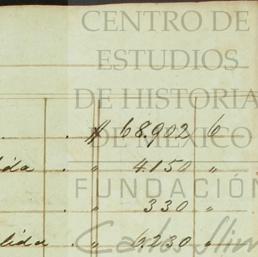 CENTRO DE
ESTUDIOS
DE HISTORIA
DE MÉXICO
FUNDACIÓN
Carlos Slim
. $ 68.902 6
ida . " 4.150 "
. " 330 "
lida . " 6.230 "